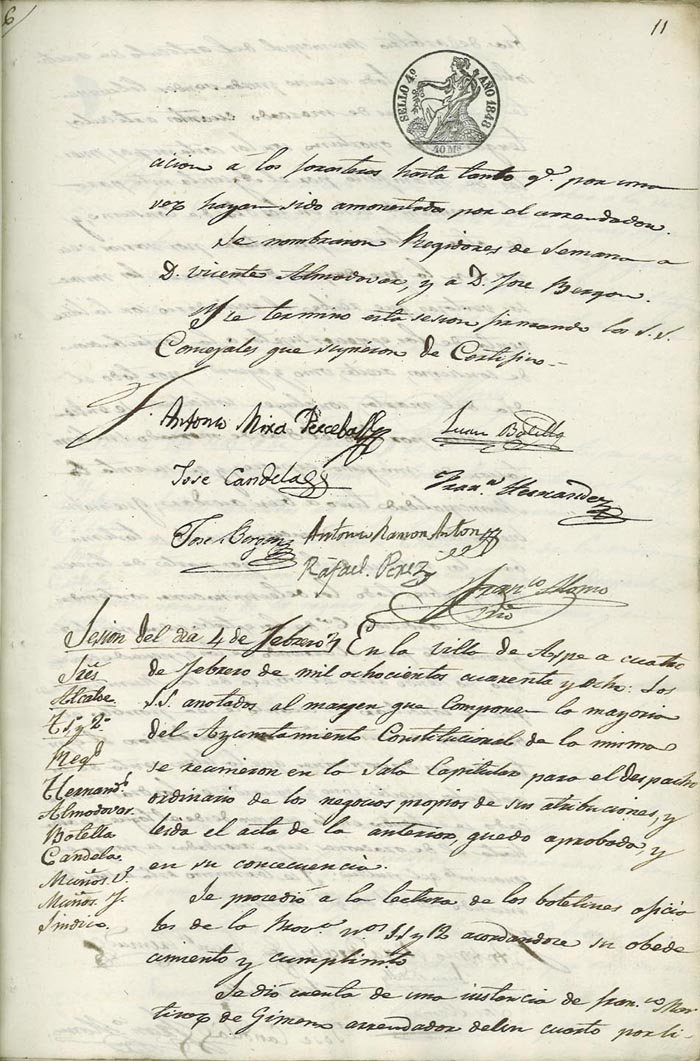 11
SELLO 4º AÑO 1848
40 Ms
cion a los forasteros hasta tanto q.e por una
vez hayan sido amonestados por el arrendador.
Se nombraron Regidores de Semana a
D. Vicente Almodovar, y a D. Jose Bergon.
Y se termino esta sesion firmando los S.S.
Concejales que supieron de Certifico =
Antonio Mira Perceball
Juan Botella
Jose Candela
Fran.co Hernandez
Jose Bergon
Antonio Ramon Anton
Rafael Perez
Fran.co Alamo
Srio
Sesion del dia 4 de Febrero
En la villa de Aspe a cuatro
de Febrero de mil ochocientos cuarenta y ocho: Los
S.S. anotados al margen que componen la mayoria
del Ayuntamiento Constitucional de la misma
se reunieron en la Sala Capitular para el despacho
ordinario de los negocios propios de sus atribuciones, y
leida el acta de la anterior, quedo aprobada, y
en su concecuencia.
Sres
Alcalde
T. 1º y 2º
Reg.s
Hernand.z
Almodovar.
Botella
Candela.
Muños V.
Muños J.
Sindico.
Se procedió a la lectura de los boletines oficia
les de la Prov.a nos 11 y 12 acordandose su obede
cimiento y cumplim.to
Se dió cuenta de una instancia de Fran.co Mar
tinez de Gimeno arrendador del un cuarto por li